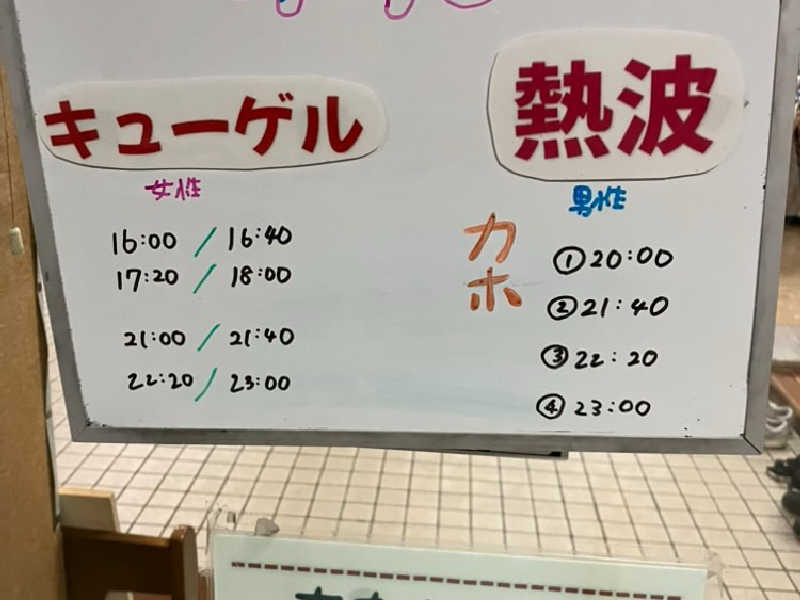 キューゲル
女性
16:00 / 16:40
17:20 / 18:00
21:00 / 21:40
22:20 / 23:00
熱波
男性
カホ
①20:00
②21:40
③22:20
④23:00